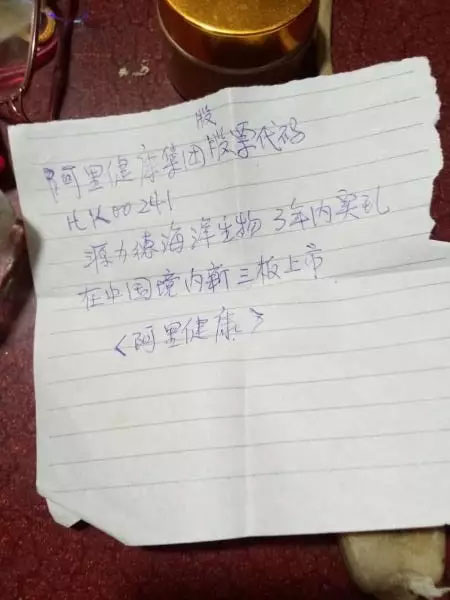 股
阿里健康集团股票代码
HK00241
源力德海洋生物 3年内实现
在中国境内新三板上市
<阿里健康>